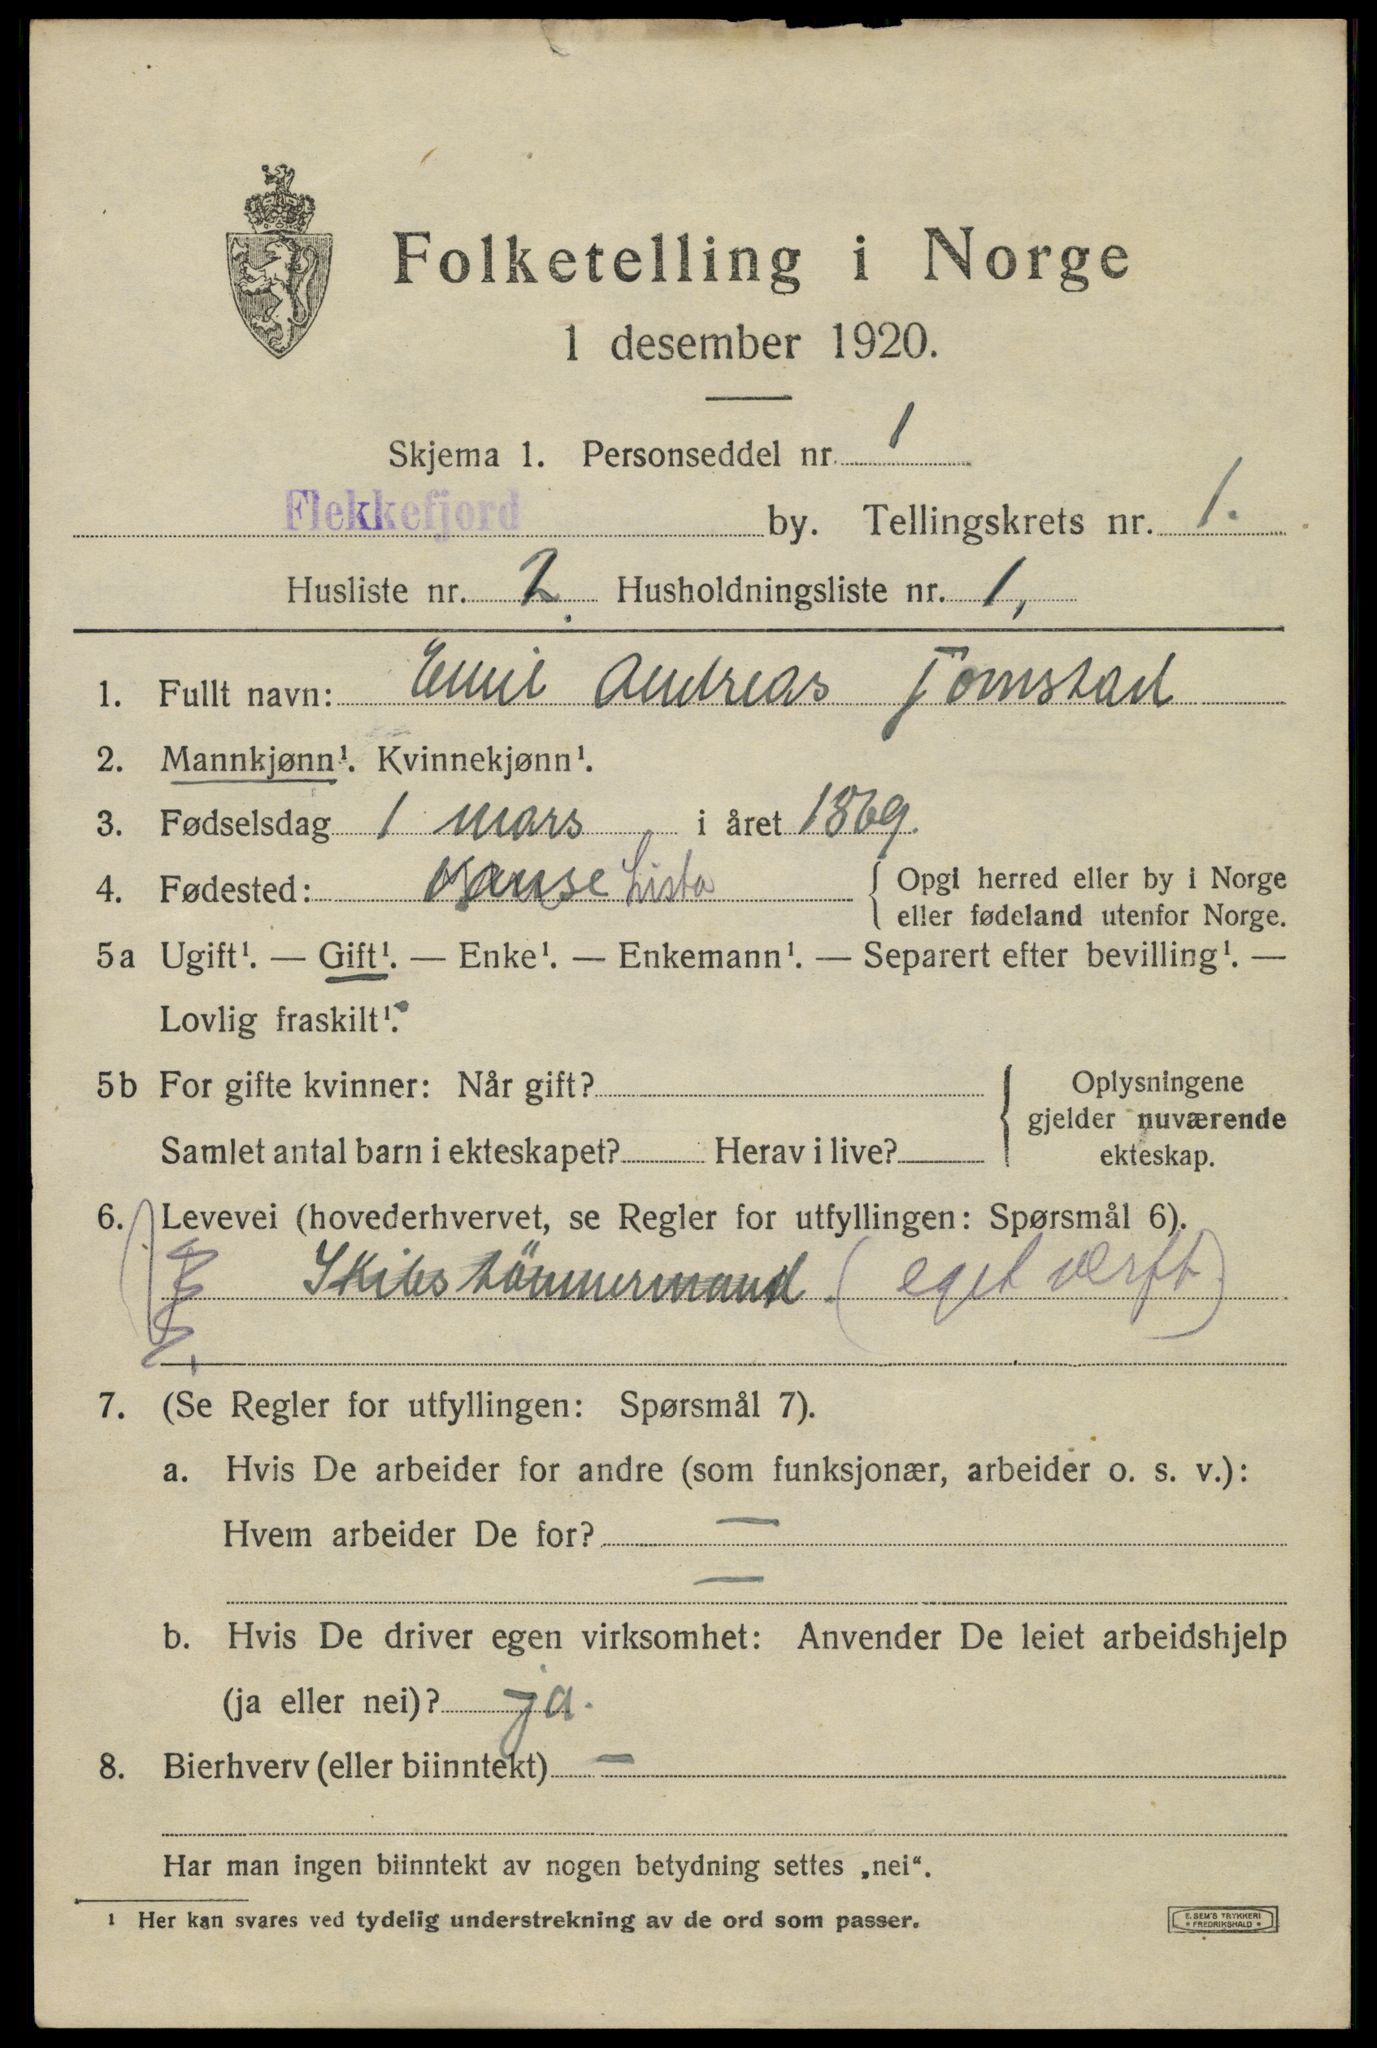 Folketelling i Norge
1 desember 1920.
Skjema 1. Personseddel nr. 1
Flekkefjord by. Tellingskrets nr. 1.
Husliste nr. 2. Husholdningsliste nr. 1,
1. Fullt navn: Emil Andreas Tomstad
2. Mannkjønn¹. Kvinnekjønn¹.
3. Fødselsdag 1 mars i året 1869.
4. Fødested: Vanse Lista { Opgi herred eller by i Norge
eller fødeland utenfor Norge.
5a Ugift¹. — Gift¹. — Enke¹. — Enkemann¹. — Separert efter bevilling¹. —
Lovlig fraskilt¹.
5b For gifte kvinner: Når gift? { Oplysningene
gjelder nuværende
Samlet antal barn i ekteskapet? Herav i live? ekteskap.
6. Levevei (hovederhvervet, se Regler for utfyllingen: Spørsmål 6).
Skibstömmermand. (eget verft)
7. (Se Regler for utfyllingen: Spørsmål 7).
a. Hvis De arbeider for andre (som funksjonær, arbeider o. s. v.):
Hvem arbeider De for? —
—
b. Hvis De driver egen virksomhet: Anvender De leiet arbeidshjelp
(ja eller nei)? ja.
8. Bierhverv (eller biinntekt) —
Har man ingen biinntekt av nogen betydning settes „nei“.
¹ Her kan svares ved tydelig understrekning av de ord som passer.
E. SEM'S TRYKKERI
* FREDRIKSHALD *